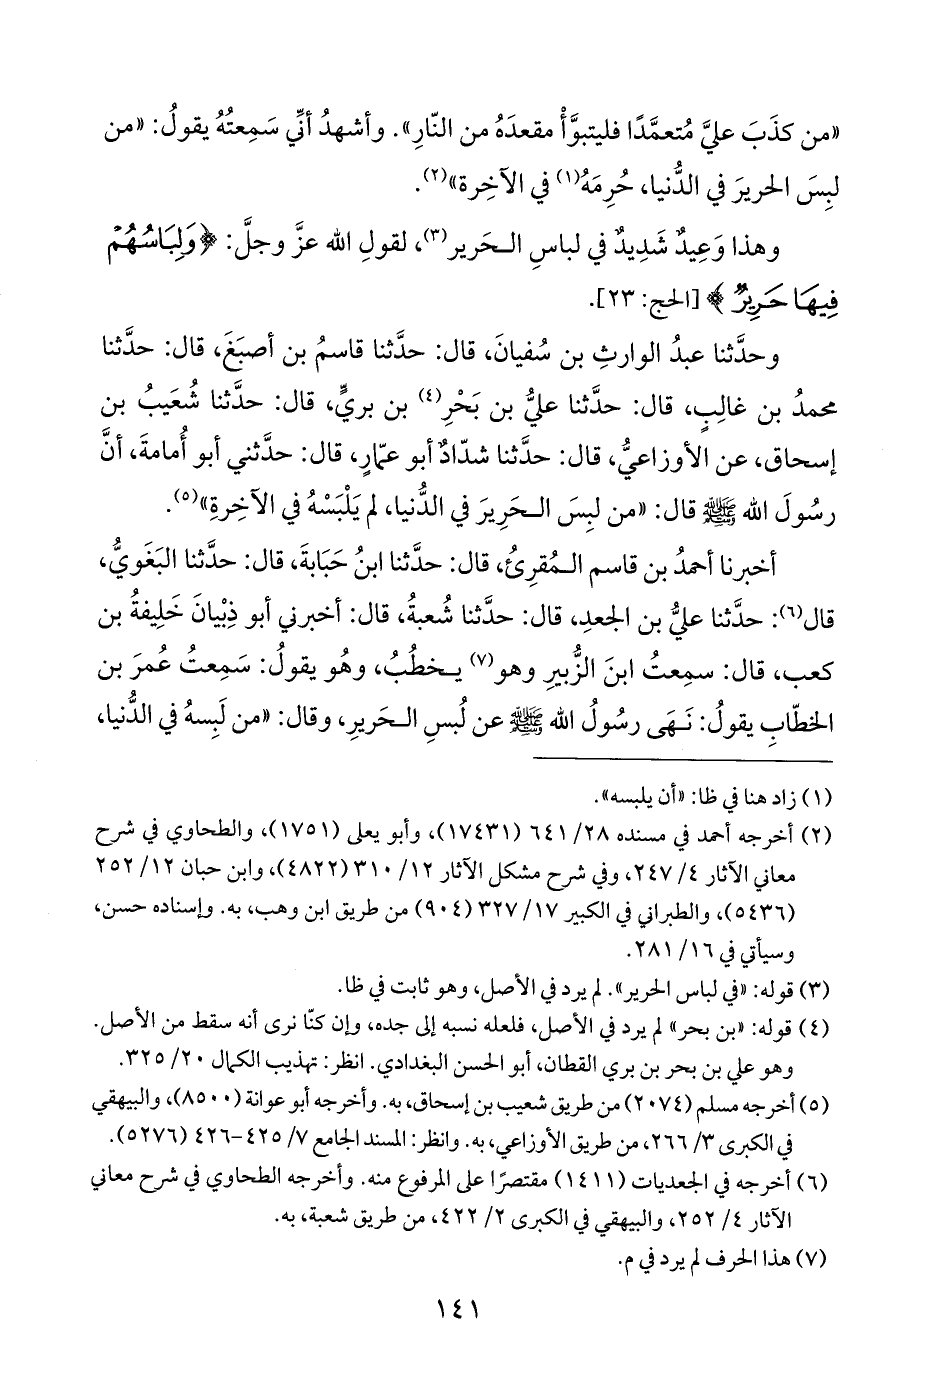 «من كذَبَ عليَّ مُتعمَّدًا فليتبوَّأْ مقعدَهُ من النّارِ». وأشهدُ أنِّي سَمِعتُهُ يقولُ: «من
لبِسَ الحريرَ في الدُّنيا، حُرِمَهُ(١) في الآخِرة»(٢).
وهذا وَعِيدٌ شَدِيدٌ في لباسِ الـحَرير(٣)، لقولِ الله عزَّ وجلَّ: ﴿وَلِبَاسُهُمْ
فِيهَا حَرِيرٌ﴾ [الحج: ٢٣].
وحدَّثنا عبدُ الوارثِ بن سُفيانَ، قال: حدَّثنا قاسمُ بن أصبَغَ، قال: حدَّثنا
محمدُ بن غالِبٍ، قال: حدَّثنا عليُّ بن بَحْرِ(٤) بن بريٍّ، قال: حدَّثنا شُعَيبُ بن
إسحاق، عن الأوزاعيُّ، قال: حدَّثنا شدّادٌ أبو عمّارٍ، قال: حدَّثني أبو أُمامةَ، أنَّ
رسُولَ الله ﷺ قال: «من لبِسَ الـحَرِيرَ في الدُّنيا، لم يَلْبَسْهُ في الآخِرةِ»(٥).
أخبرنا أحمدُ بن قاسم الـمُقرِئُ، قال: حدَّثنا ابنُ حَبَابةَ، قال: حدَّثنا البَغَويُّ،
قال(٦): حدَّثنا عليُّ بن الجعدِ، قال: حدَّثنا شُعبةُ، قال: أخبرني أبو ذِبْيانَ خَلِيفةُ بن
كعب، قال: سمِعتُ ابنَ الزُّبيرِ وهو(٧) يـخطُبُ، وهُو يقولُ: سَمِعتُ عُمرَ بن
الخطّابِ يقولُ: نَـهَى رسُولُ الله ﷺ عن لُبسِ الـحَريرِ، وقال: «من لَبِسهُ في الدُّنيا،
(١) زاد هنا في ظا: «أن يلبسه».
(٢) أخرجه أحمد في مسنده ٢٨/ ٦٤١ (١٧٤٣١)، وأبو يعلى (١٧٥١)، والطحاوي في شرح
معاني الآثار ٤/ ٢٤٧، وفي شرح مشكل الآثار ١٢/ ٣١٠ (٤٨٢٢)، وابن حبان ١٢/ ٢٥٢
(٥٤٣٦)، والطبراني في الكبير ١٧/ ٣٢٧ (٩٠٤) من طريق ابن وهب، به. وإسناده حسن،
وسيأتي في ١٦/ ٢٨١.
(٣) قوله: «في لباس الحرير». لم يرد في الأصل، وهو ثابت في ظا.
(٤) قوله: «بن بحر» لم يرد في الأصل، فلعله نسبه إلى جده، وإن كنّا نرى أنه سقط من الأصل.
وهو علي بن بحر بن بري القطان، أبو الحسن البغدادي. انظر: تهذيب الكمال ٢٠/ ٣٢٥.
(٥) أخرجه مسلم (٢٠٧٤) من طريق شعيب بن إسحاق، به. وأخرجه أبو عوانة (٨٥٠٠)، والبيهقي
في الكبرى ٣/ ٢٦٦، من طريق الأوزاعي، به. وانظر: المسند الجامع ٧/ ٤٢٥-٤٢٦ (٥٢٧٦).
(٦) أخرجه في الجعديات (١٤١١) مقتصرًا على المرفوع منه. وأخرجه الطحاوي في شرح معاني
الآثار ٤/ ٢٥٢، والبيهقي في الكبرى ٢/ ٤٢٢، من طريق شعبة، به.
(٧) هذا الحرف لم يرد في م.
١٤١